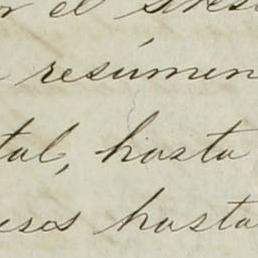 or el
resúmen
tal, hasta
esos hasta